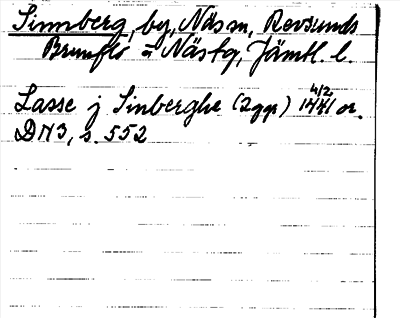 Sinnberg, by, Näs sn, Revsunds
Brunflo o Näs tg, Jämtl. l.
Lasse j Sinberghe (2 ggr) 4/2 1441 or.
DN3, s. 552